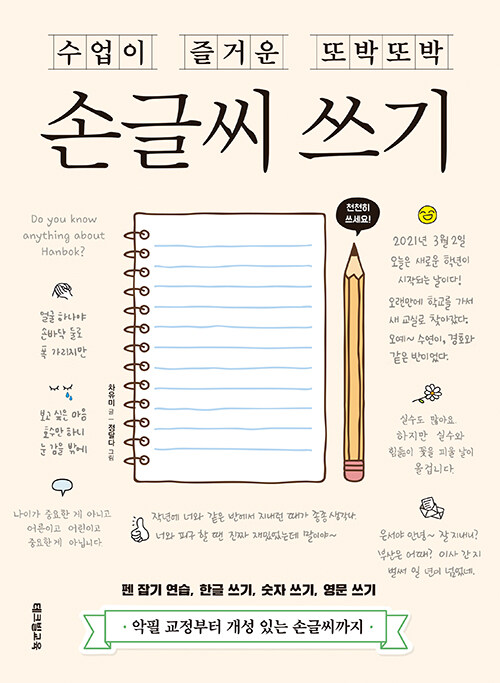 수업이 즐거운 또박또박
손글씨 쓰기
천천히
쓰세요!
Do you know
anything about
Hanbok?
얼굴 하나야
손바닥 둘로
폭 가리지만
보고 싶은 마음
호수만 하니
눈 감을 밖에
나이가 중요한 게 아니고
어른이고 어린이고
중요한 게 아닙니다.
차유미 글 | 정달다 그림
2021년 3월 2일
오늘은 새로운 학년이
시작되는 날이다!
오랜만에 학교를 가서
새 교실로 찾아갔다.
오예~ 수연이, 경호와
같은 반이었다.
실수도 많아요.
하지만 실수와
힘듦이 꽃을 피울 날이
올겁니다.
작년에 너와 같은 반에서 지내던 때가 종종 생각나.
너와 피구 할 땐 진짜 재밌었는데 말이야~
윤서야 안녕~ 잘 지내니?
부산은 어때? 이사 간 지
벌써 일 년이 넘었네.
펜 잡기 연습, 한글 쓰기, 숫자 쓰기, 영문 쓰기
· 악필 교정부터 개성 있는 손글씨까지 ·
테크빌교육